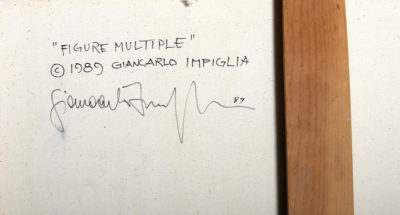 "FIGURE MULTIPLE"
© 1989 GIANCARLO IMPIGLIA
Giancarlo Impiglia 89